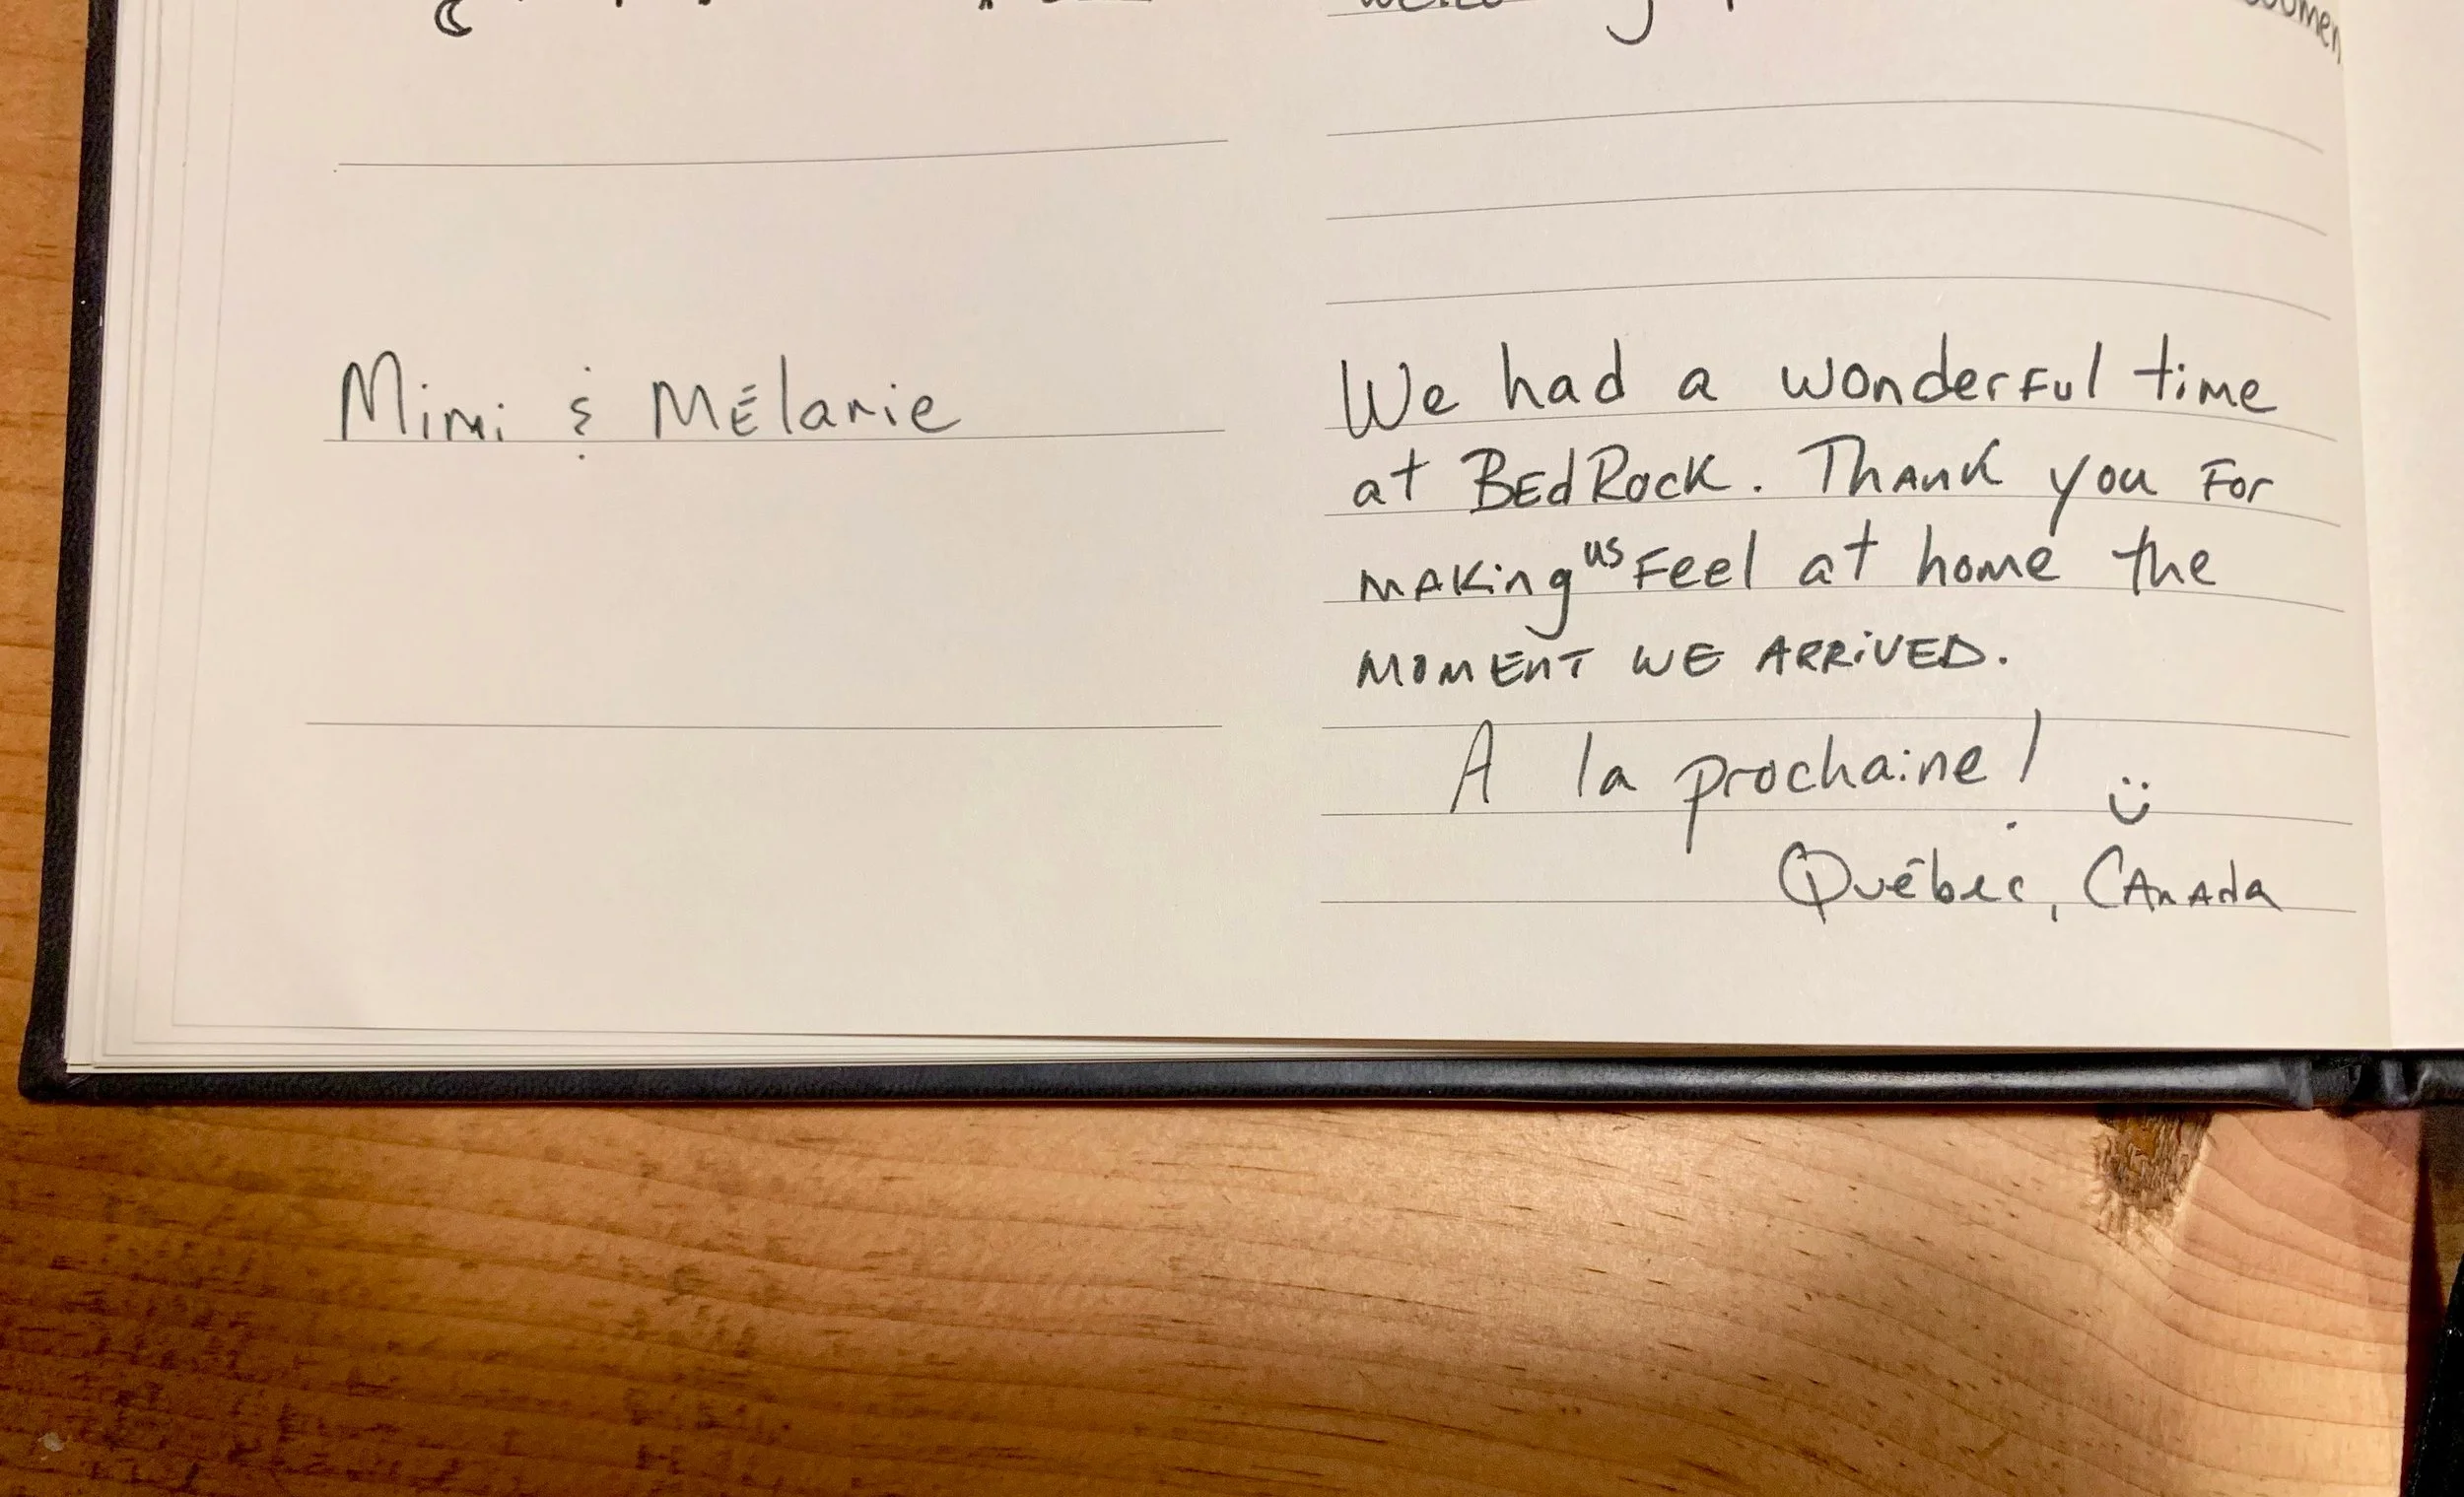 Mimi & MÉlanie
We had a wonderFul time
at BEdRock. Thank you For
making us Feel at home the
MOMEnT WE ARRiVED.
A la prochaine! :)
Québec, CAnAda